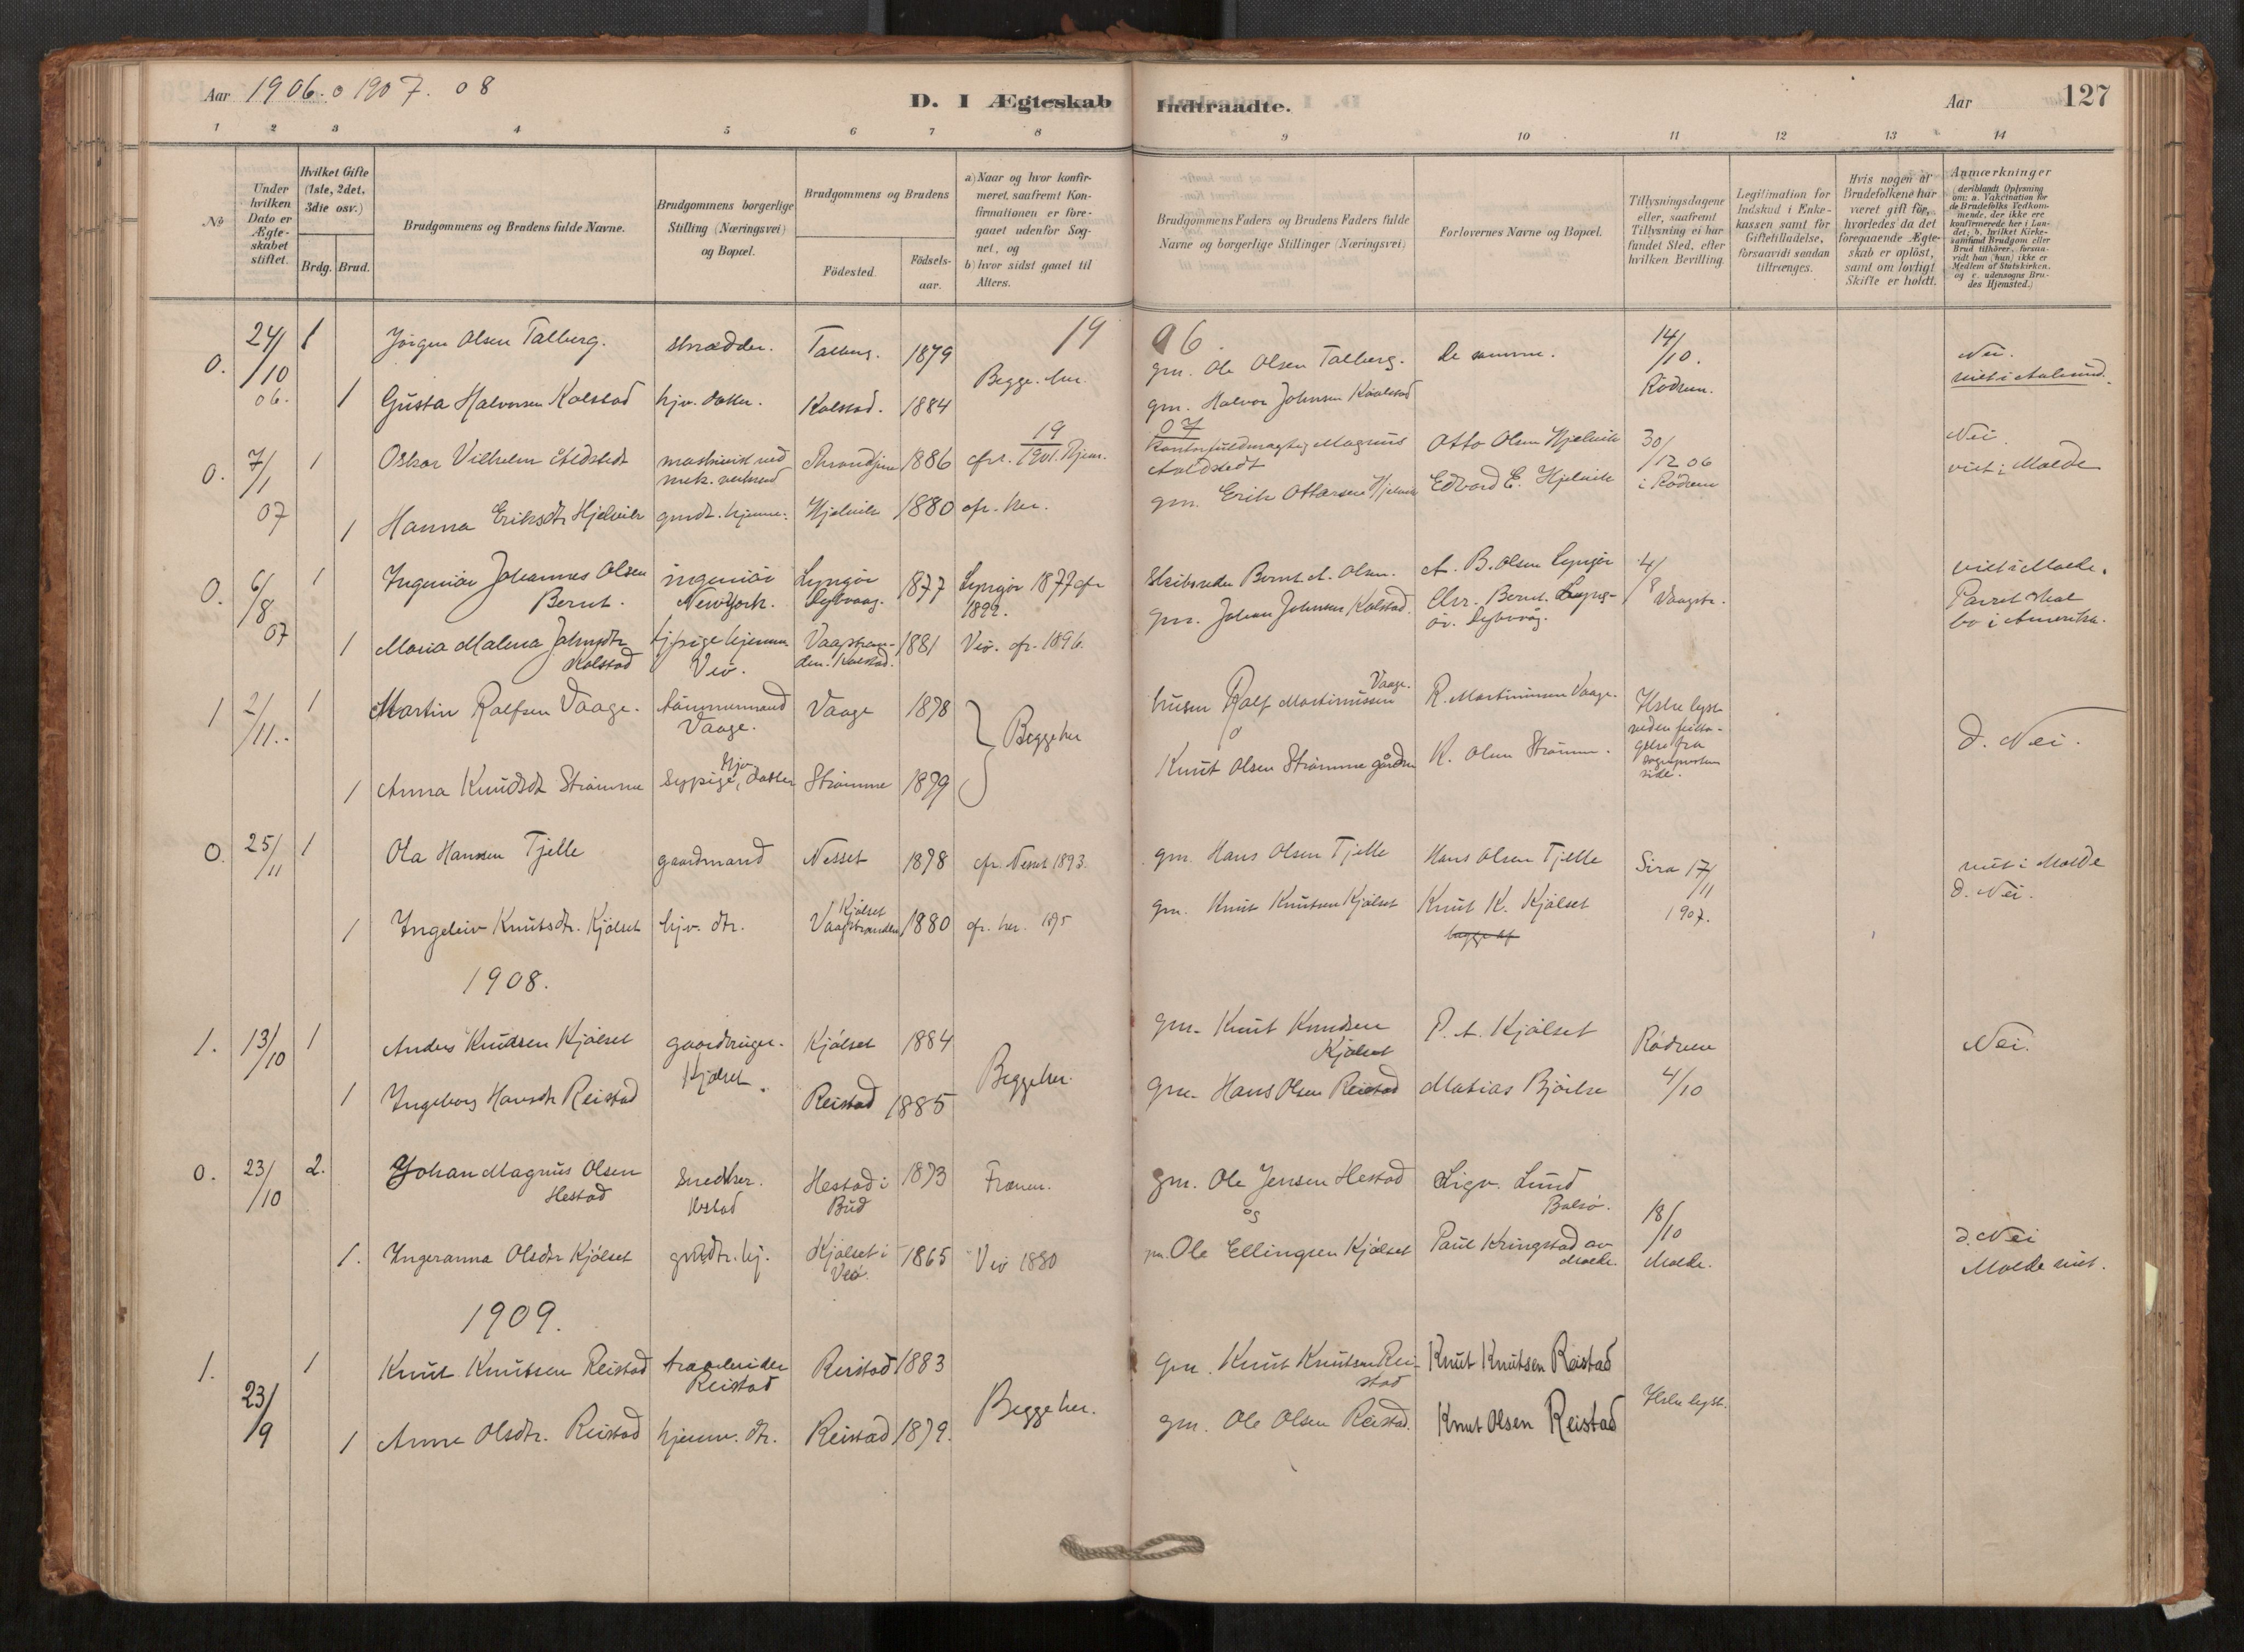 Aar 1906. o 1907. 08
D. I Ægteskab Indtraadte.
Aar 127
1 2 3 4 5 6 7 8 9 10 11 12 13 14
No
Under hvilken Dato er Ægteskabet stiftet.
Hvilket Gifte (1ste, 2det, 3die osv.)
Brdg. Brud.
Brudgommens og Brudens fulde Navne.
Brudgommens borgerlige Stilling (Næringsvei) og Bopæl.
Brudgommens og Brudens
Födested.
Födselsaar.
a) Naar og hvor konfirmeret, saafremt Konfirmationen er foregaaet udenfor Sognet, og
b) hvor sidst gaaet til Alters.
Brudgommens Faders og Brudens Faders fulde Navne og borgerlige Stillinger (Næringsvei)
Forlovernes Navne og Bopæl.
Tillysningsdagene eller, saafremt Tillysning ei har fundet Sted, efter hvilken Bevilling.
Legitimation for Indskud i Enkekassen samt for Giftetilladelse, forsaavidt saadan tiltrænges.
Hvis nogen af Brudefolkene har været gift för, hvorledes da det foregaaende Ægteskab er oplöst, samt om lovligt Skifte er holdt.
Anmærkninger
(deriblandt Oplysning om: a. Vakcination for de Brudefolks Vedkommende, der ikke ere konfirmerede her i Landet; b. hvilket Kirkesamfund Brudgom eller Brud tilhörer, forsaavidt han (hun) ikke er Medlem af Statskirken, og c. udensogns Brudes Hjemsted.)
19 06.
0. 24/10 06. 1 Jörgen Olsen Talberg. skrædder. Talberg. 1879 Begge her. gm. Ole Olsen Talberg. de samme. 14/10. Rödven. Nei.
1 Gusta Halvorsen Kolstad hjv. datter. Kolstad. 1884 gm. Halvor Johnsen Kaalstad
19 07
0. 7/1 07 1 Oskar Vilhelm maskinist ved mek. 1886 1901. Kontorfuldmægtig Magnus Otto Olsen Hjelvik 30/12 06 i Rödven Nei. viet i Molde
1 Hanna Eriksdtr Hjelvik gmdt. hjemme. Hjelvik 1880 cfr. her. gm. Erik Ottersen Hjelvik Edvard E. Hjelvik
0. 6/8 07 1 Ingeniör Johannes Olsen Bernt. ingeniör NewYork. Lyngör Dybvaag. 1877 Lyngör 1877 cfr 1892. Skibsreder Bernt A. Olsen. A. B. Olsen Lyngör 4/8 Vaagstr. viet i Molde.
1 Maria Malena Johnsdtr Kolstad hjemme Veö. Vaagstranden. Kolstad. 1881 Veö. cfr. 1896. gm. Johan Johnsen Kolstad. Chr. Bernt. Lyngör. Dybvåg. Parret skal bo i Amerika.
1 2/11. 1 Martin Rolfsen Vaage. tömmermand Vaage. Vaage 1878 Begge her husm Rolf Martinussen Vaage. R. Martinussen Vaage. Holm lyst d. Nei.
1 Anna Knudsdt Strömme Sypige, hjv datter Strömme 1879 Knut Olsen Strömme gårdm K. Olsen Strömme.
0. 25/11 1 Ola Hansen Tjelle gaardmand Nesset 1878 cfr. Nesset 1893. gm. Hans Olsen Tjelle Hans Olsen Tjelle Sira 17/11 1907. viet i Molde d. Nei.
1 Ingeleiv Knutsdtr. Kjölset hjv. dtr. Kjölset Vaagstranden 1880 cfr. her. 1895 gm. Knut Knutsen Kjölset Knut K. Kjölset
1908.
1. 13/10 1 Anders Knudsen Kjölset gaardbruger. Kjölset. Kjölset 1884 Begge her. gm. Knut Knudsen Kjölset P. A. Kjölset Rödven 4/10 Nei.
1 Ingeborg Hansdtr Reistad Reistad 1885 gm. Hans Olsen Reistad Matias Björlse
0. 23/10 2. Johan Magnus Olsen Hestad Snedker. Hestad Hestad i Bud 1873 Frænen. gm. Ole Jensen Hestad Sigv. Lund Bolsö. 18/10 Molde.
og
1. Ingeranna Olsdtr Kjölset gmdtr. hj. Kjölset i Veö. 1865 Veö 1880 gm. Ole Ellingsen Kjölset Paul Kringstad av Molde. d. Nei Molde viet.
1909.
1. 23/9 1 Knut Knutsen Reistad Reistad Reistad 1883 Begge her. gm. Knut Knutsen Reistad Knut Knutsen Reistad Holm lyst.
1 Anne Olsdtr. Reistad hjemv. dtr. Reistad 1879. gm. Ole Olsen Reistad. Knut Olsen Reistad